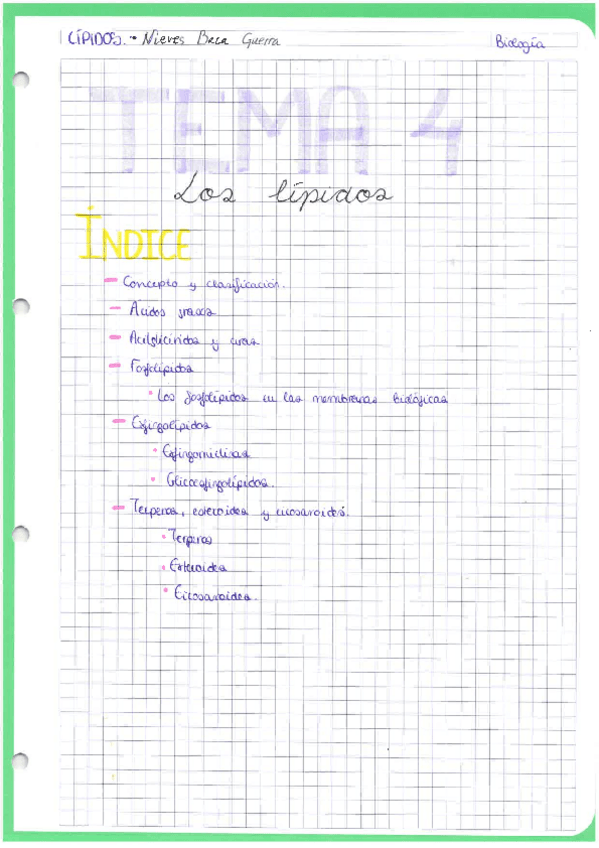 LÍPIDOS. - Nieves Baca Guerra
Biología
TEMA 4
Los lípidos
ÍNDICE
- Concepto y clasificación.
- Ácidos grasos
- Acilglicéridos y ceras
- Fosfolípidos
• Los fosfolípidos en las membranas biológicas
- Esfingolípidos
• Esfingomielinas
• Glucoesfingolípidos.
- Terpenos, esteroides y eicosanoides.
• Terpenos
• Esteroides
• Eicosanoides.